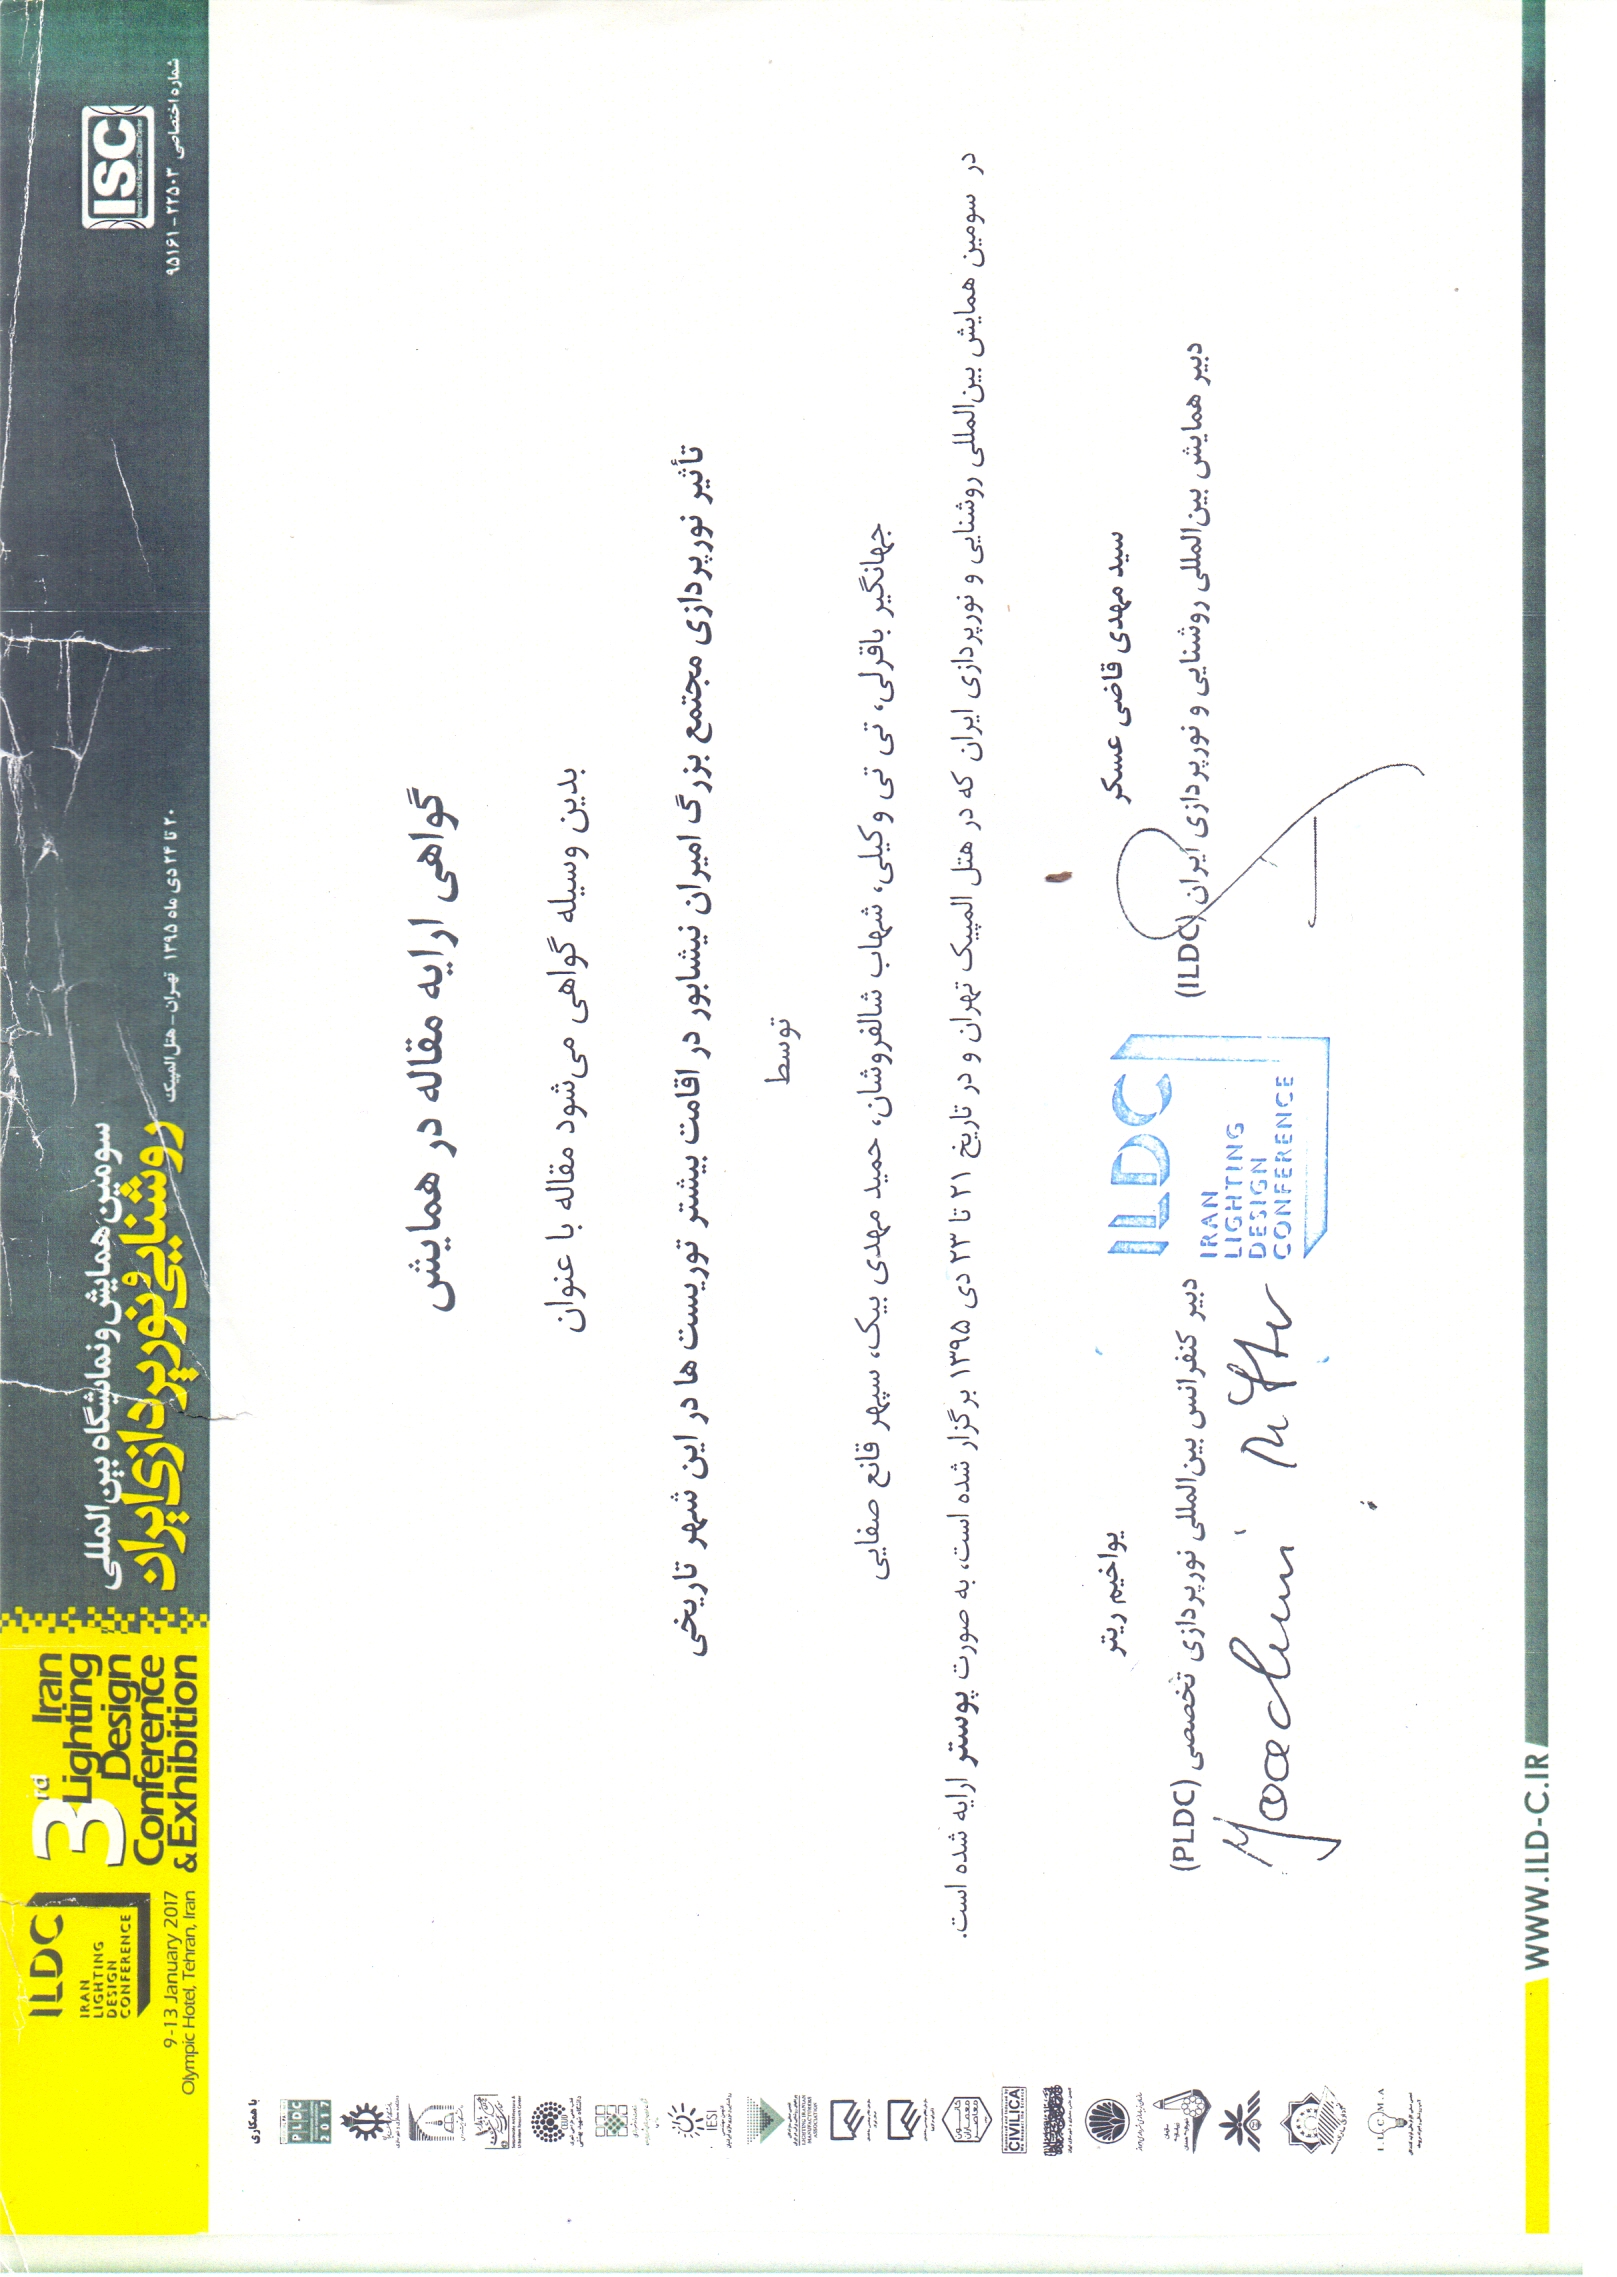 ILDC
IRAN
LIGHTING
DESIGN
CONFERENCE
3rd Iran
Lighting
Design
Conference
& Exhibition
9-13 January 2017
Olympic Hotel, Tehran, Iran
سومین همایش و نمایشگاه بین‌المللی
روشنایی و نورپردازی ایران
۲۰ تا ۲۴ دی ماه ۱۳۹۵ تهران - هتل المپیک
ISC
شماره اختصاصی ۲۲۵۰۳ - ۹۵۱۶۱
گواهی ارایه مقاله در همایش
بدین وسیله گواهی می‌شود مقاله با عنوان
تأثیر نورپردازی مجتمع بزرگ امیران نیشابور در اقامت بیشتر توریست ها در این شهر تاریخی
توسط
جهانگیر باقرلی، تی تی وکیلی، شهاب شالفروشان، حمید مهدی بیک، سپهر قانع صفایی
در سومین همایش بین‌المللی روشنایی و نورپردازی ایران که در هتل المپیک تهران و در تاریخ ۲۱ تا ۲۳ دی ۱۳۹۵ برگزار شده است، به صورت پوستر ارایه شده است.
سید مهدی قاضی عسکر
دبیر همایش بین‌المللی روشنایی و نورپردازی ایران (ILDC)
یواخیم ریتر
دبیر کنفرانس بین‌المللی نورپردازی تخصصی (PLDC)
ILDC
IRAN
LIGHTING
DESIGN
CONFERENCE
با همکاری
PLDC
2017
IESI
LIGHTING IRANIAN
MANUFACTURERS
ASSOCIATION
CIVILICA
I.L.C.M.A
WWW.ILD-C.IR